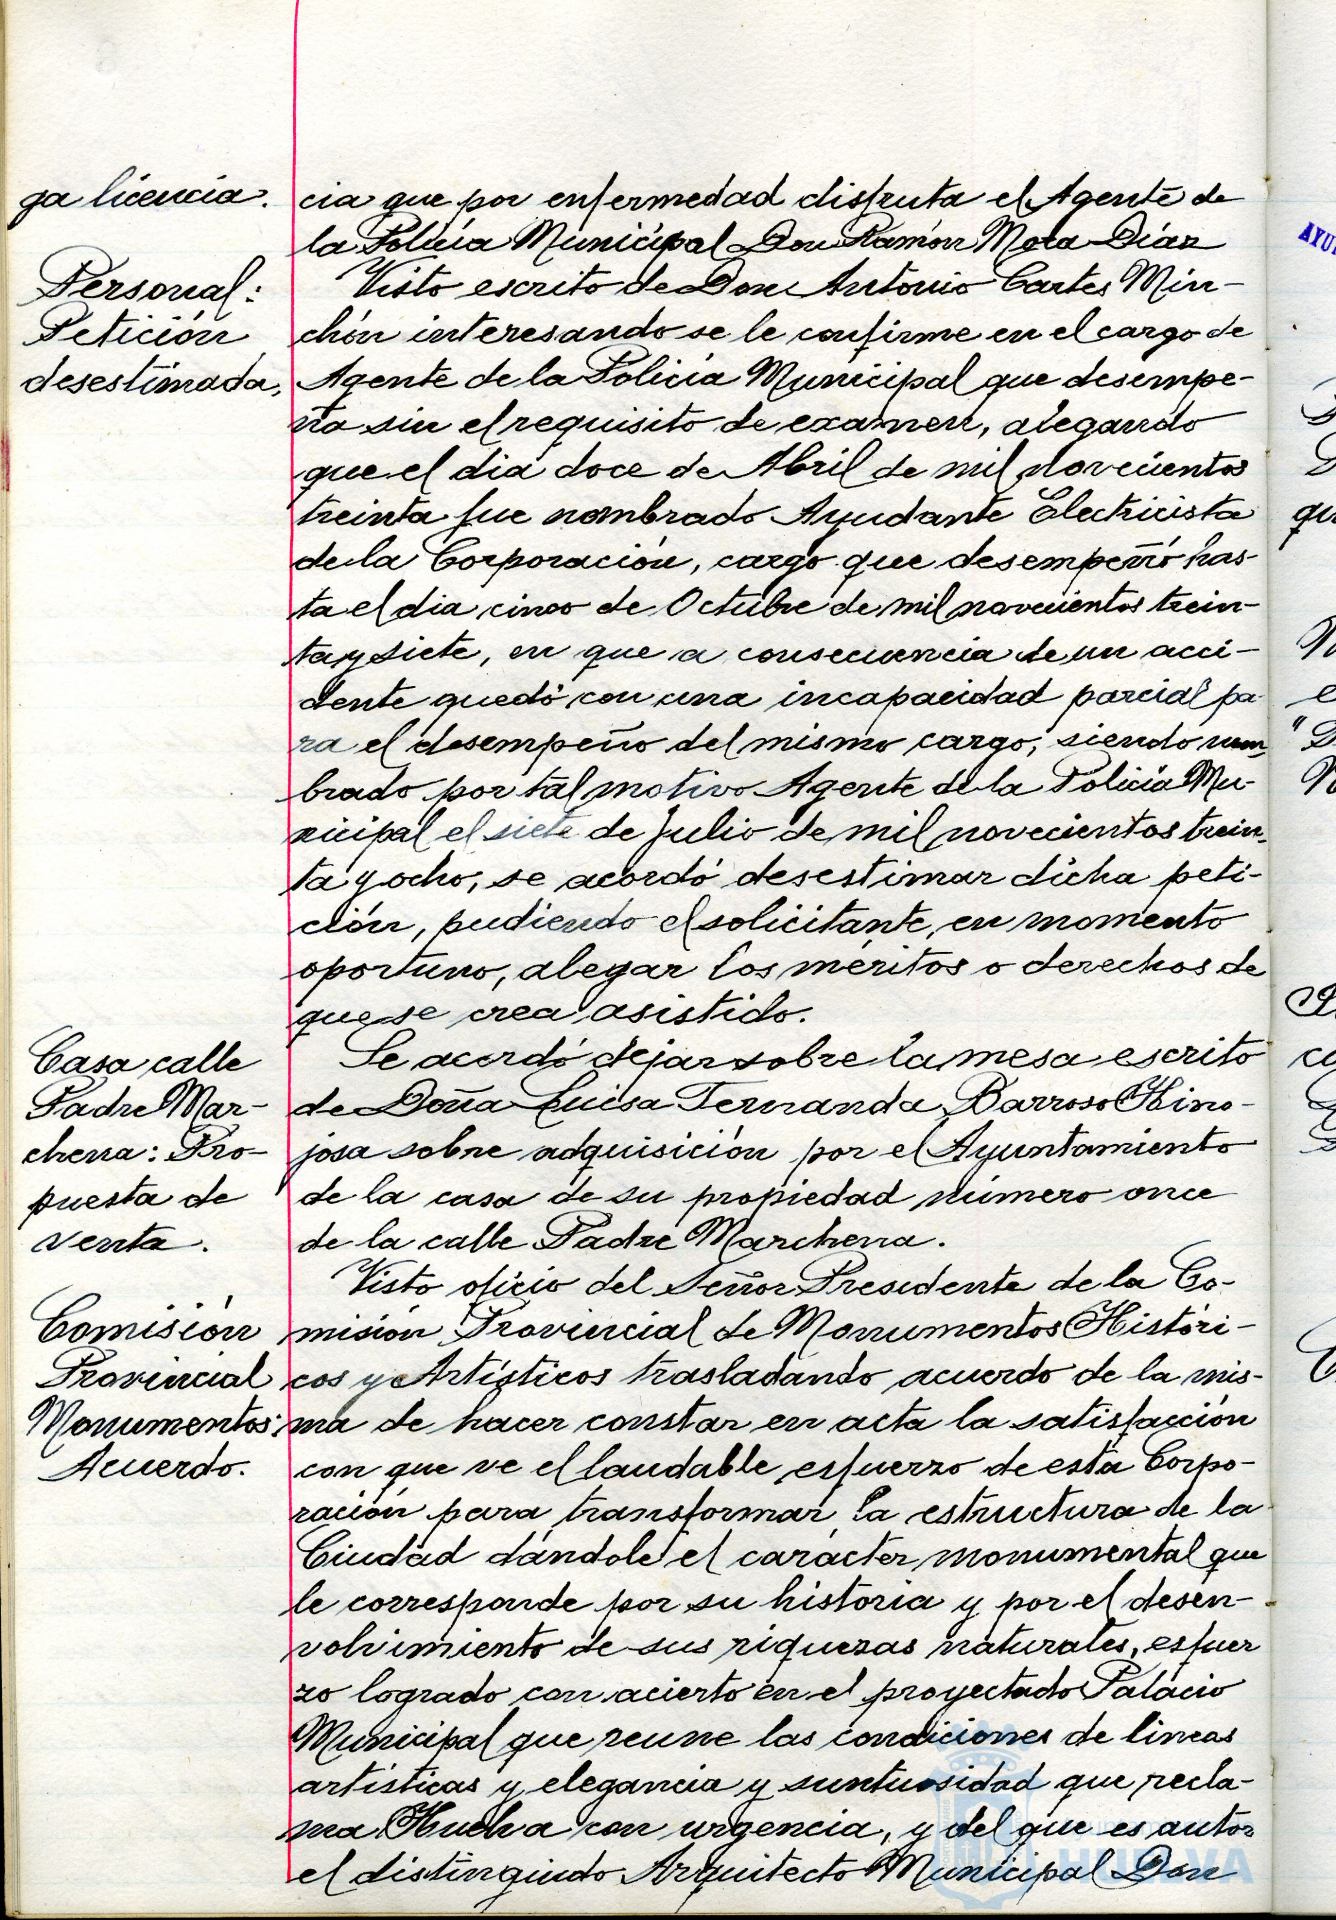 ga licencia.
cia que por enfermedad disfruta el Agente de
la Policia Municipal Don Ramón Mora Díaz
Personal:
Petición
desestimada.
Visto escrito de Don Antonio Cartes Min-
chón interesando se le confirme en el cargo de
Agente de la Policía Municipal que desempe-
ña sin el requisito de examen, alegando
que el dia doce de Abril de mil novecientos
treinta fue nombrado Ayudante Electricista
de la Corporación, cargo que desempeñó has-
ta el dia cinco de Octubre de mil novecientos trein-
ta y siete, en que a consecuencia de un acci-
dente quedó con una incapacidad parcial pa-
ra el desempeño del mismo cargo, siendo nom-
brado por tal motivo Agente de la Policía Mu-
nicipal el siete de Julio de mil novecientos trein-
ta y ocho, se acordó desestimar dicha peti-
ción, pudiendo el solicitante, en momento
oportuno, alegar los méritos o derechos de
que se crea asistido.
Casa calle
Padre Mar-
chena: Pro-
puesta de
venta.
Se acordó dejar sobre la mesa escrito
de Doña Luisa Fernanda Barroso Hino-
josa sobre adquisición por el Ayuntamiento
de la casa de su propiedad número once
de la calle Padre Marchena.
Comisión
Provincial
Monumentos:
Acuerdo.
Visto oficio del Señor Presidente de la Co-
misión Provincial de Monumentos Históri-
cos y Artísticos trasladando acuerdo de la mis-
ma de hacer constar en acta la satisfacción
con que ve el laudable esfuerzo de esta Corpo-
ración para transformar la estructura de la
Ciudad dándole el carácter monumental que
le corresponde por su historia y por el desen-
volvimiento de sus riquezas naturales, esfuer
zo logrado con acierto en el proyectado Palacio
Municipal que reune las condiciones de lineas
artísticas y elegancia y suntuosidad que recla-
ma Huelva con urgencia, y del que es autor
el distinguido Arquitecto Municipal Don
HUELVA